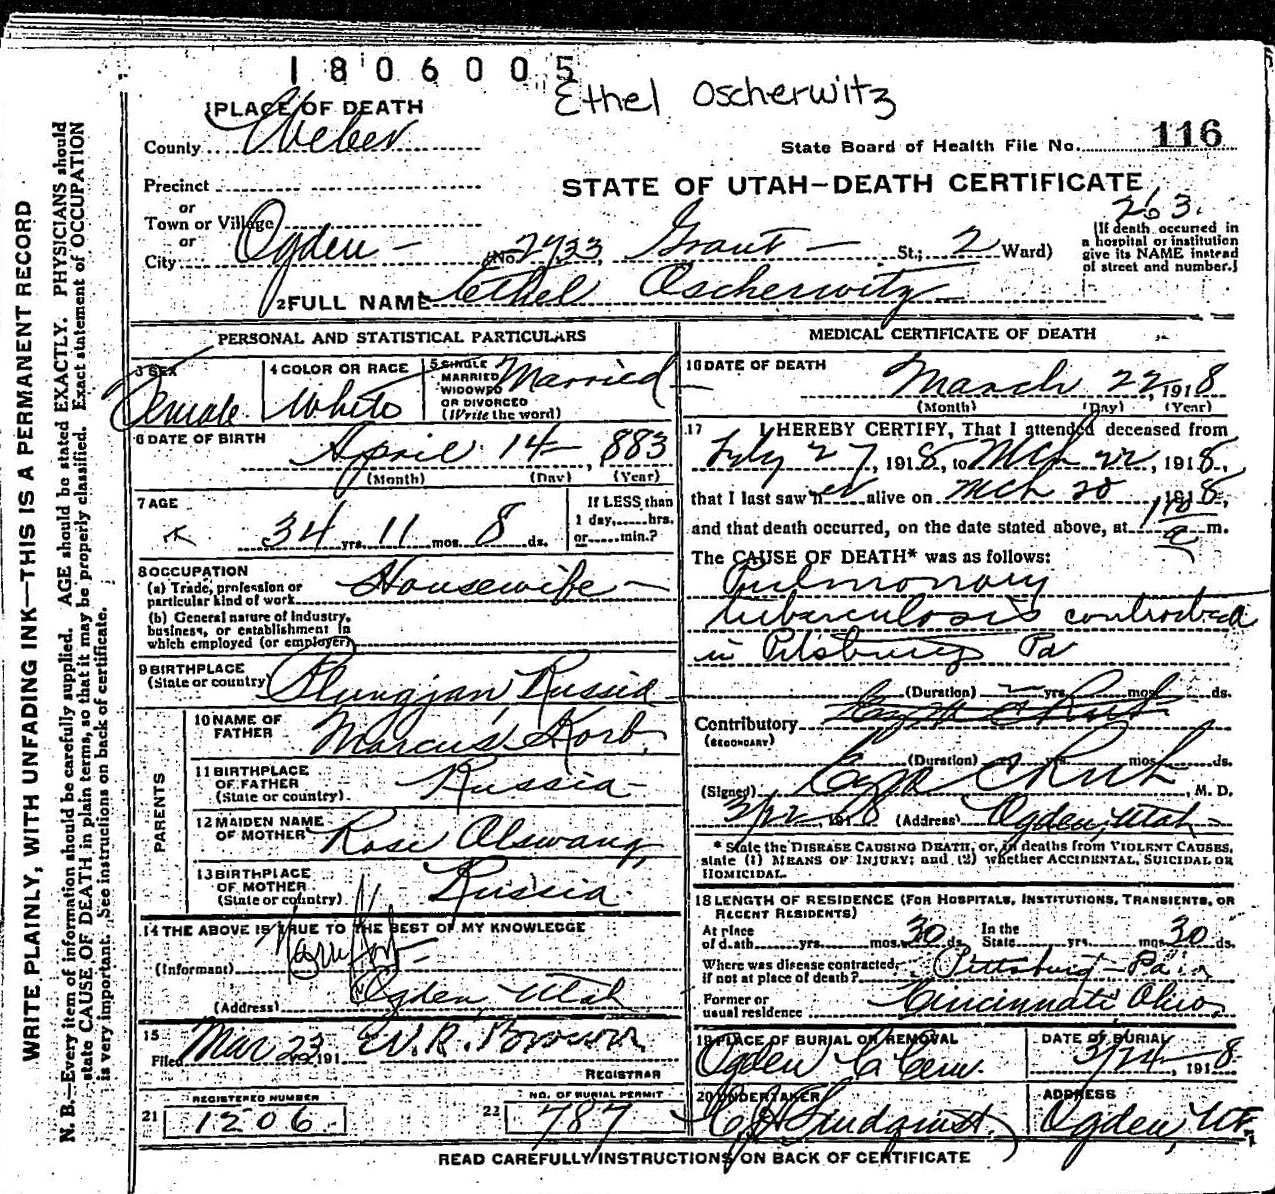 1806005
Ethel Oscherwitz
1 PLACE OF DEATH
County Weber
State Board of Health File No. 116
Precinct
or
STATE OF UTAH—DEATH CERTIFICATE
263
Town or Village
or
City Ogden (No. 2733 Grant St.; 2 Ward)
(If death occurred in
a hospital or institution
give its NAME instead
of street and number.)
2 FULL NAME Ethel Oscherwitz
PERSONAL AND STATISTICAL PARTICULARS
3 SEX Female
4 COLOR OR RACE White
5 SINGLE
MARRIED
WIDOWED
OR DIVORCED
(Write the word) Married
6 DATE OF BIRTH
April 14, 883
(Month) (Day) (Year)
7 AGE
34 yrs. 11 mos. 8 ds.
If LESS than
1 day, ...... hrs.
or ...... min.?
8 OCCUPATION
(a) Trade, profession or
particular kind of work Housewife
(b) General nature of industry,
business, or establishment in
which employed (or employer)
9 BIRTHPLACE
(State or country) Russia
PARENTS
10 NAME OF
FATHER Marcus Korb
11 BIRTHPLACE
OF FATHER
(State or country) Russia
12 MAIDEN NAME
OF MOTHER Rose Olswang
13 BIRTHPLACE
OF MOTHER
(State or country) Russia
14 THE ABOVE IS TRUE TO THE BEST OF MY KNOWLEDGE
(Informant)
(Address) Ogden Utah
15
Filed Mar 23, 191 W. R. Brown
REGISTRAR
21 REGISTERED NUMBER
1206
22 NO. OF BURIAL PERMIT
787
MEDICAL CERTIFICATE OF DEATH
16 DATE OF DEATH
March 22, 1918
(Month) (Day) (Year)
17 I HEREBY CERTIFY, That I attended deceased from
27, 1918, to Mch 22, 1918,
that I last saw her alive on Mch 20 1918,
and that death occurred, on the date stated above, at m.
The CAUSE OF DEATH* was as follows:
Pulmonary
tuberculosis contracted
in Pitsburg Pa
(Duration) 2 yrs. mos. ds.
Contributory
(SECONDARY)
(Duration) yrs. mos. ds.
(Signed) M. D.
3/22, 1918 (Address) Ogden, Utah
* State the DISEASE CAUSING DEATH, or, in deaths from VIOLENT CAUSES,
state (1) MEANS OF INJURY; and (2) whether ACCIDENTAL, SUICIDAL OR
HOMICIDAL.
18 LENGTH OF RESIDENCE (FOR HOSPITALS, INSTITUTIONS, TRANSIENTS, OR
RECENT RESIDENTS)
At place
of death yrs. mos. 30 ds.
In the
State yrs. mos. 30 ds.
Where was disease contracted,
if not at place of death? Pittsburg Pa
Former or
usual residence Cincinnati, Ohio,
19 PLACE OF BURIAL OR REMOVAL
Ogden C Cem.
DATE OF BURIAL
3/24, 1918
20 UNDERTAKER
Lindquist
ADDRESS
Ogden, Ut.
READ CAREFULLY INSTRUCTIONS ON BACK OF CERTIFICATE
WRITE PLAINLY, WITH UNFADING INK—THIS IS A PERMANENT RECORD
N. B.—Every item of information should be carefully supplied. AGE should be stated EXACTLY. PHYSICIANS should
state CAUSE OF DEATH in plain terms, so that it may be properly classified. Exact statement of OCCUPATION
is very important. See instructions on back of certificate.